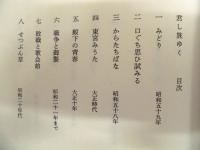 悲し旅ゆく 目次
一 みどり 昭和五十九年
二 口ぐち思ひ試みる
三 からたちばな 昭和五十八年
四 東宮みうた 大正時代
五 殿下の青春 大正十年
六 戦争と習慣 昭和二十一年まで
七 敗戦と教会館
八 せつぶん草 昭和二十年代